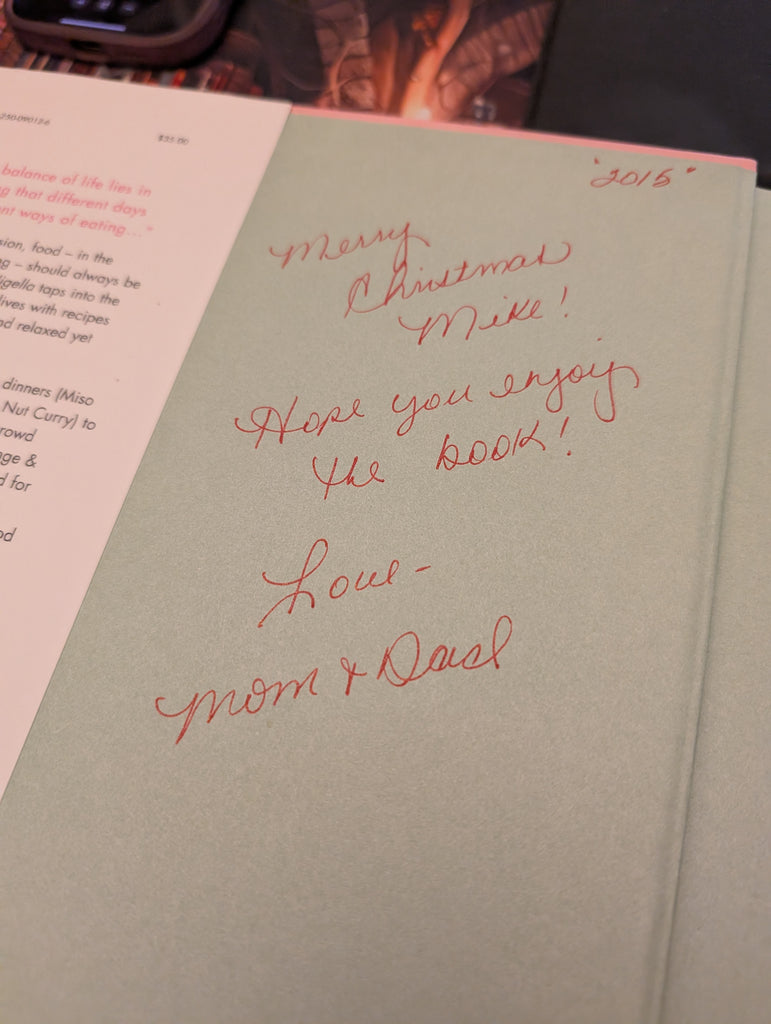 $35.00
balance of life lies in
that different days
ways of eating..."
food – in the
– should always be
taps into the
lives with recipes
relaxed yet
dinners (Miso
Nut Curry) to
&
for
"2015"
Merry
Christmas
Mike!
Hope you enjoy
the book!
Love-
Mom & Dad